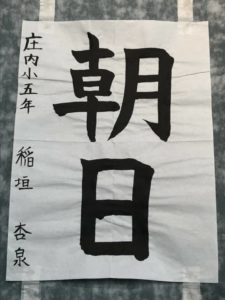 朝日
庄内小五年 稲垣 杏泉